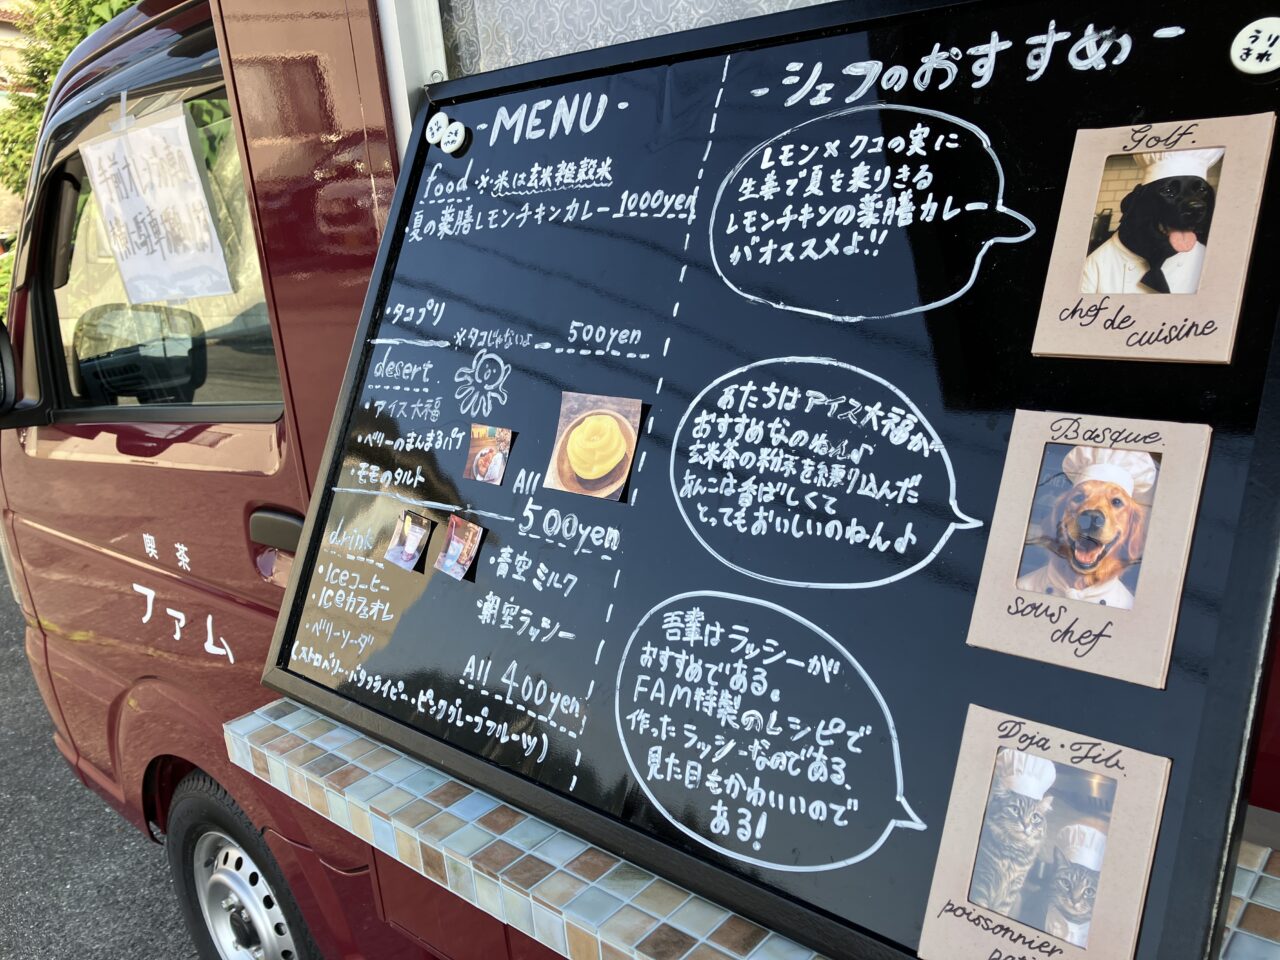 -MENU-
food ※米は玄米雑穀米
・夏の薬膳レモンチキンカレー 1000yen
・タコプリ
※タコじゃないよ 500yen
desert
・アイス大福
・ベリーのまんまるパイ
・モモのタルト
All 500yen
drink
・Iceコーヒー
・Iceカフェオレ
・ベリーソーダ
(ストロベリー・バタフライピー・ピンクグレープフルーツ)
・青空ミルク
・朝空ラッシー
All 400yen
-シェフのおすすめ-
うりきれ
レモン×クコの実に
生姜で夏を乗りきる
レモンチキンの薬膳カレー
がオススメよ!!
Golf.
chef de
cuisine
あたちはアイス大福が
おすすめなのねん♪
玄米茶の粉末を練り込んだ
あんこは香ばしくて
とってもおいしいのねん♪
Basque.
sous
chef
吾輩はラッシーが
おすすめである。
FAM特製のレシピで
作ったラッシーなのである、
見た目もかわいいので
ある!
Doja・Jib.
poissonnier
喫茶
ファム